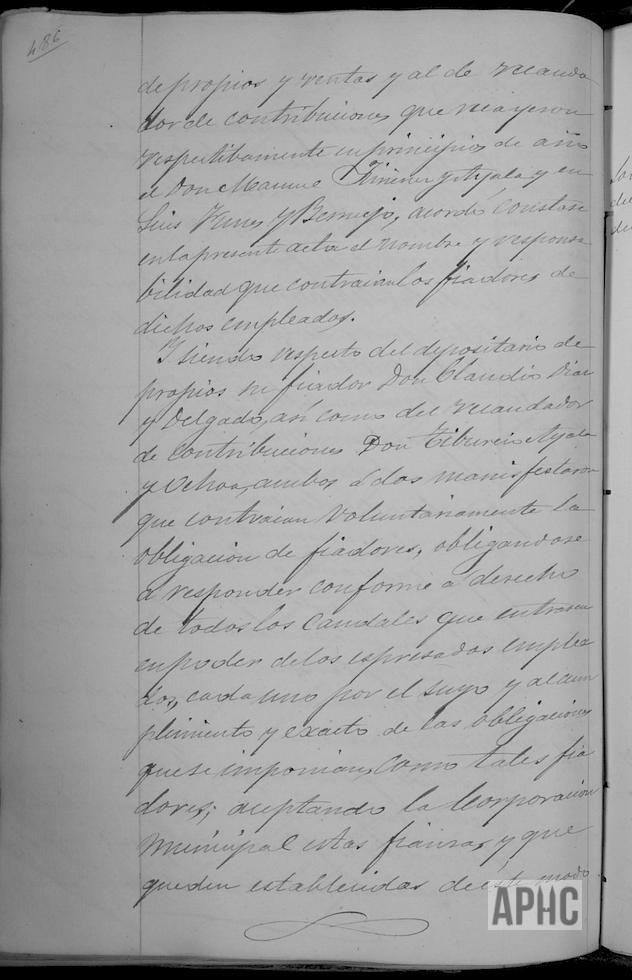 486
de propios y rentas y al de recauda
dor de contribuciones que recayeron
respectibamente en principios de año
el Don Manuel Jimenez y Ayala y en
Luis Nunes y Bermejo, acordó constase
en la presente acta el nombre y responsa
bilidad que contraian los fiadores de
dichos empleados.
Y siendo respecto del depositario de
propios su fiador Don Claudio Diaz
y Delgado, asi como del recaudador
de contribuciones Don Tiburcio Ayala
y Ochoa, ambos á dos manisfestaron
que contraian voluntariamente la
obligacion de fiadores, obligandose
á responder conforme á derecho
de todos los caudales que entrasen
en poder de los espresados emplea
dos, cada uno por el suyo y al cum
plimiento y exacto de las obligaciones
que se imponian, como tales fia
dores; aceptando la Corporacion
Municipal estas fianzas y que
queden establecidas de este modo
APHC